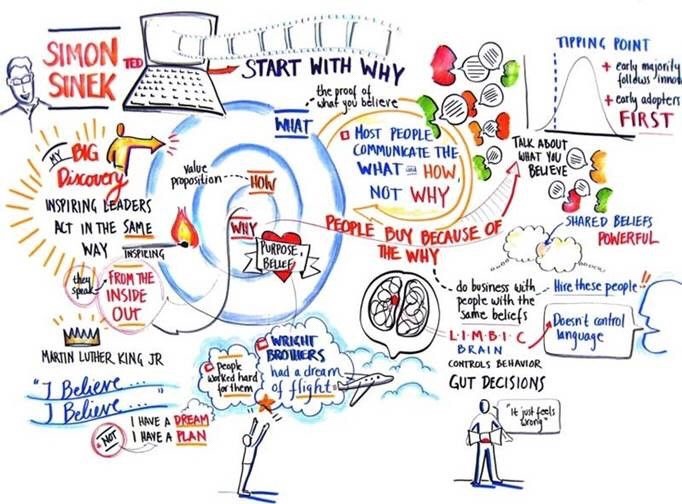 SIMON
SINEK
TED
START WITH WHY
the proof of
what you believe
WHAT
value
proposition
HOW
WHY
PURPOSE
BELIEF
MY
BIG
Discovery
INSPIRING LEADERS
ACT IN THE SAME
WAY
INSPIRING
they
speak
FROM THE
INSIDE
OUT
MARTIN LUTHER KING JR
"I Believe ...
I Believe ...
I HAVE A DREAM
NOT
I HAVE A PLAN
MOST PEOPLE
COMMUNICATE THE
WHAT and HOW,
NOT WHY
PEOPLE BUY BECAUSE OF
THE WHY
TIPPING POINT
+ early majority
follows innov
+ early adopters
FIRST
TALK ABOUT
WHAT YOU
BELIEVE
SHARED BELIEFS
POWERFUL
do business with
people with the
same beliefs
Hire these people!!
Doesn't control
language
L·I·M·B·I·C
BRAIN
CONTROLS BEHAVIOR
GUT DECISIONS
"It just feels
wrong"
People
worked hard
for them
WRIGHT
BROTHERS
had a dream
of flight